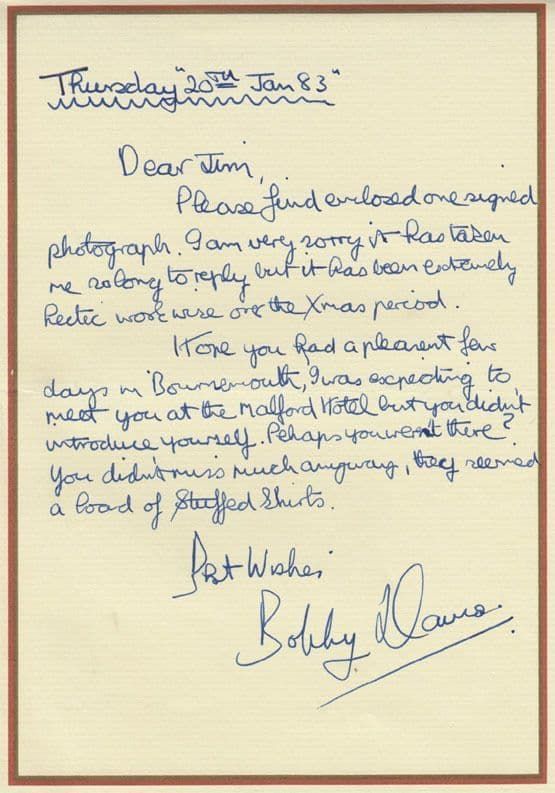 Thursday "20TH Jan 83"
Dear Jim,
Please find enclosed one signed
photograph. I am very sorry it has taken
me so long to reply but it has been extremely
hectic work wise over the Xmas period.
Hope you had a pleasent few
days in Bournemouth, I was expecting to
meet you at the Malford Hotel but you didn't
introduce yourself. Pehaps you wern't there?
You didn't miss much anyway, they seemed
a load of Stuffed Shirts.
Best Wishes
Bobby